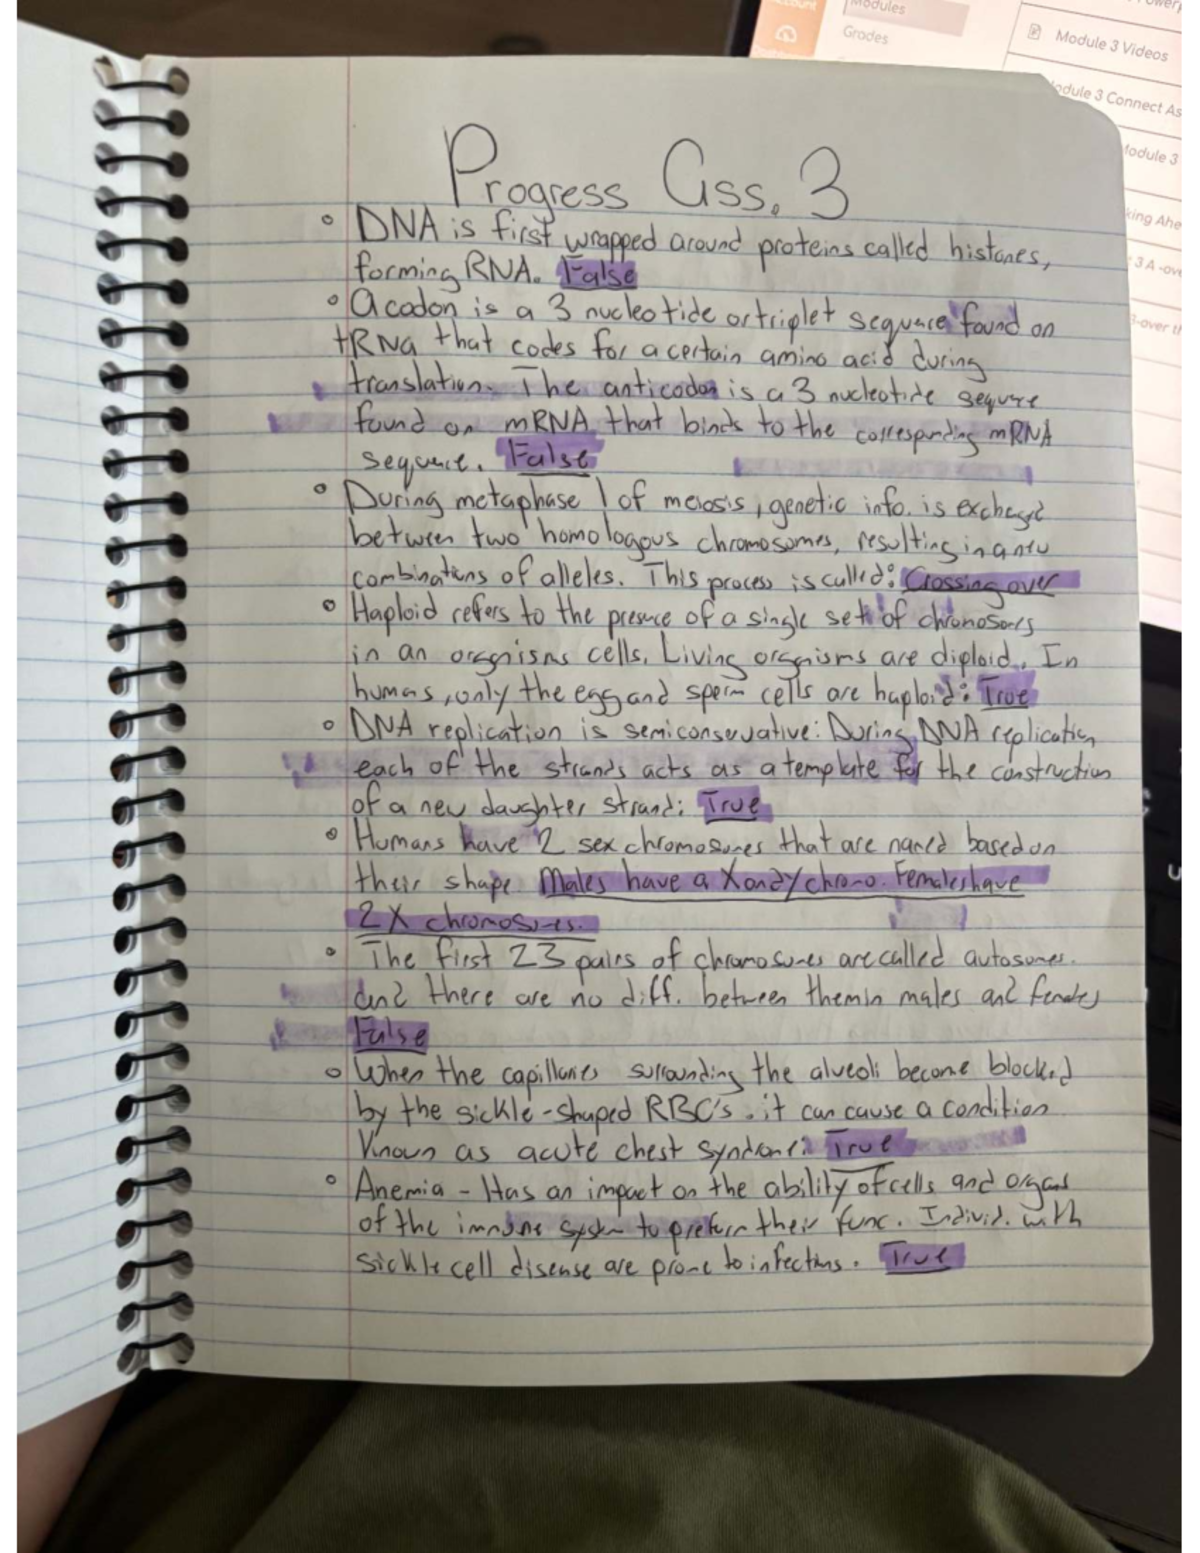 Account
Dashboard
Modules
Grades
Module 3 Videos
Module 3 Connect As
Module 3
king Ahe
: 3 A -ove
3-over th
Progress Ass. 3
° DNA is first wrapped around proteins called histones,
forming RNA. False
° A codon is a 3 nucleotide or triplet sequence found on
tRNA that codes for a certain amino acid during
translation. The anticodon is a 3 nucleotide sequence
found on mRNA that binds to the corresponding mRNA
sequence. False
° During metaphase 1 of meiosis, genetic info. is exchanged
between two homologous chromosomes, resulting in a new
combinations of alleles. This process is called: Crossing over
° Haploid refers to the presence of a single set of chromosomes
in an organisms cells. Living organisms are diploid. In
humans, only the egg and sperm cells are haploid: True
° DNA replication is semiconservative: During DNA replication
each of the strands acts as a template for the construction
of a new daughter strand: True
° Humans have 2 sex chromosomes that are named based on
their shape. Males have a X and y chromo. Females have
2 X chromosomes.
° The first 23 pairs of chromosomes are called autosomes.
and there are no diff. between them in males and females
False
° When the capillaries surrounding the alveoli become blocked
by the sickle-shaped RBC's. it can cause a condition
known as acute chest syndrome: True
° Anemia - Has an impact on the ability of cells and organs
of the immune system to preform their func. Individ. with
sickle cell disease are prone to infections. True